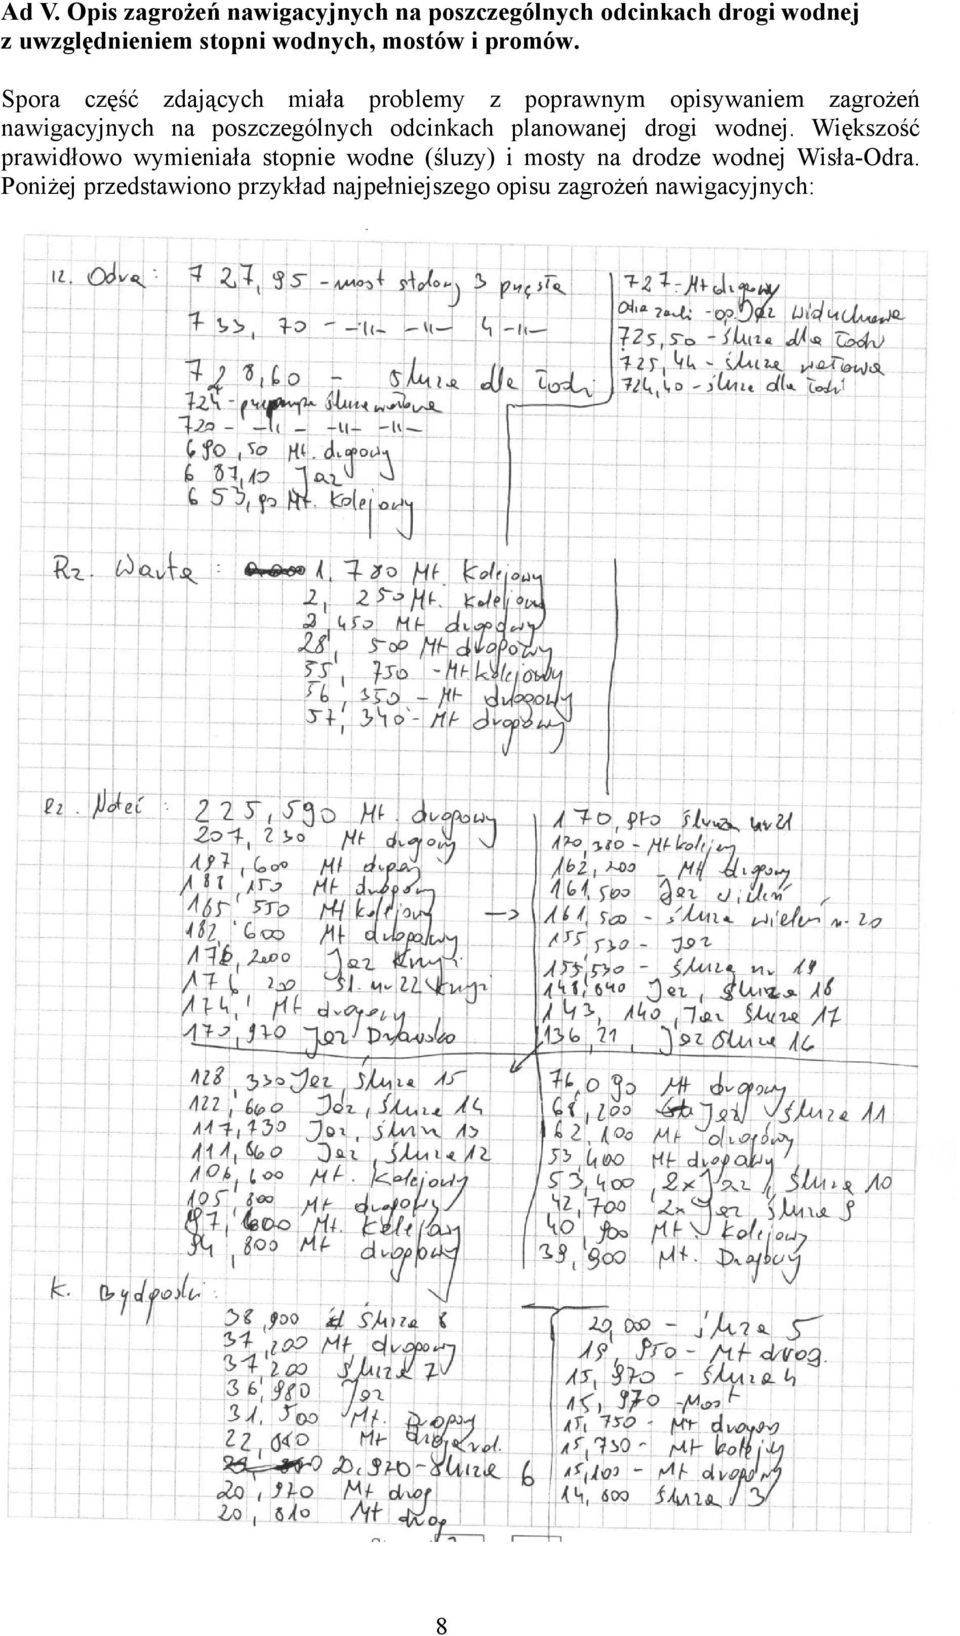 Ad V. Opis zagrożeń nawigacyjnych na poszczególnych odcinkach drogi wodnej
z uwzględnieniem stopni wodnych, mostów i promów.
Spora część zdających miała problemy z poprawnym opisywaniem zagrożeń
nawigacyjnych na poszczególnych odcinkach planowanej drogi wodnej. Większość
prawidłowo wymieniała stopnie wodne (śluzy) i mosty na drodze wodnej Wisła-Odra.
Poniżej przedstawiono przykład najpełniejszego opisu zagrożeń nawigacyjnych:
Odra : 7 27,95 - most stalowy 3 przęsła
7 33, 70 - -11- -11- 4 -11-
7 28,60 - śluza dla łodzi
724 - śluza wałowa
720 - -11- -11- -11-
690,50 Mt. drogowy
6 87,10 Jaz
6 53,90 Mt. Kolejowy
727 - Mt drogowy
Jaz Widuchowa
725,50 - śluza dla łodzi
725,44 - śluza wałowa
724,40 - śluza dla łodzi
Rz. Warta : 1, 780 Mt. Kolejowy
2, 250 Mt. Kolejowy
2,450 Mt drogowy
28, 500 Mt drogowy
55, 750 - Mt kolejowy
56, 350 - Mt drogowy
57, 340 - Mt drogowy
Rz. Noteć : 225,590 Mt. drogowy
207,230 Mt drogowy
197,600 Mt drogowy
188,150 Mt drogowy
165 550 Mt kolejowy
182,600 Mt drogowy
176,2000 Jaz Krzyż
176 200 śl. nr 22 Krzyż
174, Mt drogowy
170,970 Jaz Drawsko
170,970 śluza nr 21
120,380 - Mt kolejowy
162,200 - Mt drogowy
161,500 Jaz Wieleń
-> 161,500 - śluza Wieleń nr 20
155,530 - Jaz
155,530 - śluza nr 19
148,640 Jaz, śluza 18
143, 140, Jaz śluza 17
136,21, Jaz śluza 16
128, 330 Jaz, śluza 15
122,660 Jaz, śluza 14
117,730 Jaz, śluza 13
111,860 Jaz, śluza 12
106,600 Mt. Kolejowy
105 800 Mt drogowy
97,600 Mt. Kolejowy
94,800 Mt drogowy
76,090 Mt drogowy
68,200 Jaz śluza 11
62,100 Mt drogowy
53,400 Mt drogowy
53,400, 2x Jaz, śluza 10
42,700 2x Jaz śluza 9
40, 900 Mt. Kolejowy
39,900 Mt. Drogowy
K. Bydgoski :
38,900 śluza 8
37,200 Mt drogowy
37,200 śluza 7
36,980 Jaz
31,500 Mt. Drogowy
22,040 Mt
20,970 - śluza 6
20,970 Mt drog
20,810 Mt drog
20,000 - śluza 5
19, 950 - Mt drog.
15,970 - śluza 4
15,970 - Most
15,750 - Mt drogowy
15,730 - Mt kolejowy
15,100 - Mt drogowy
14,800 śluza 3
8